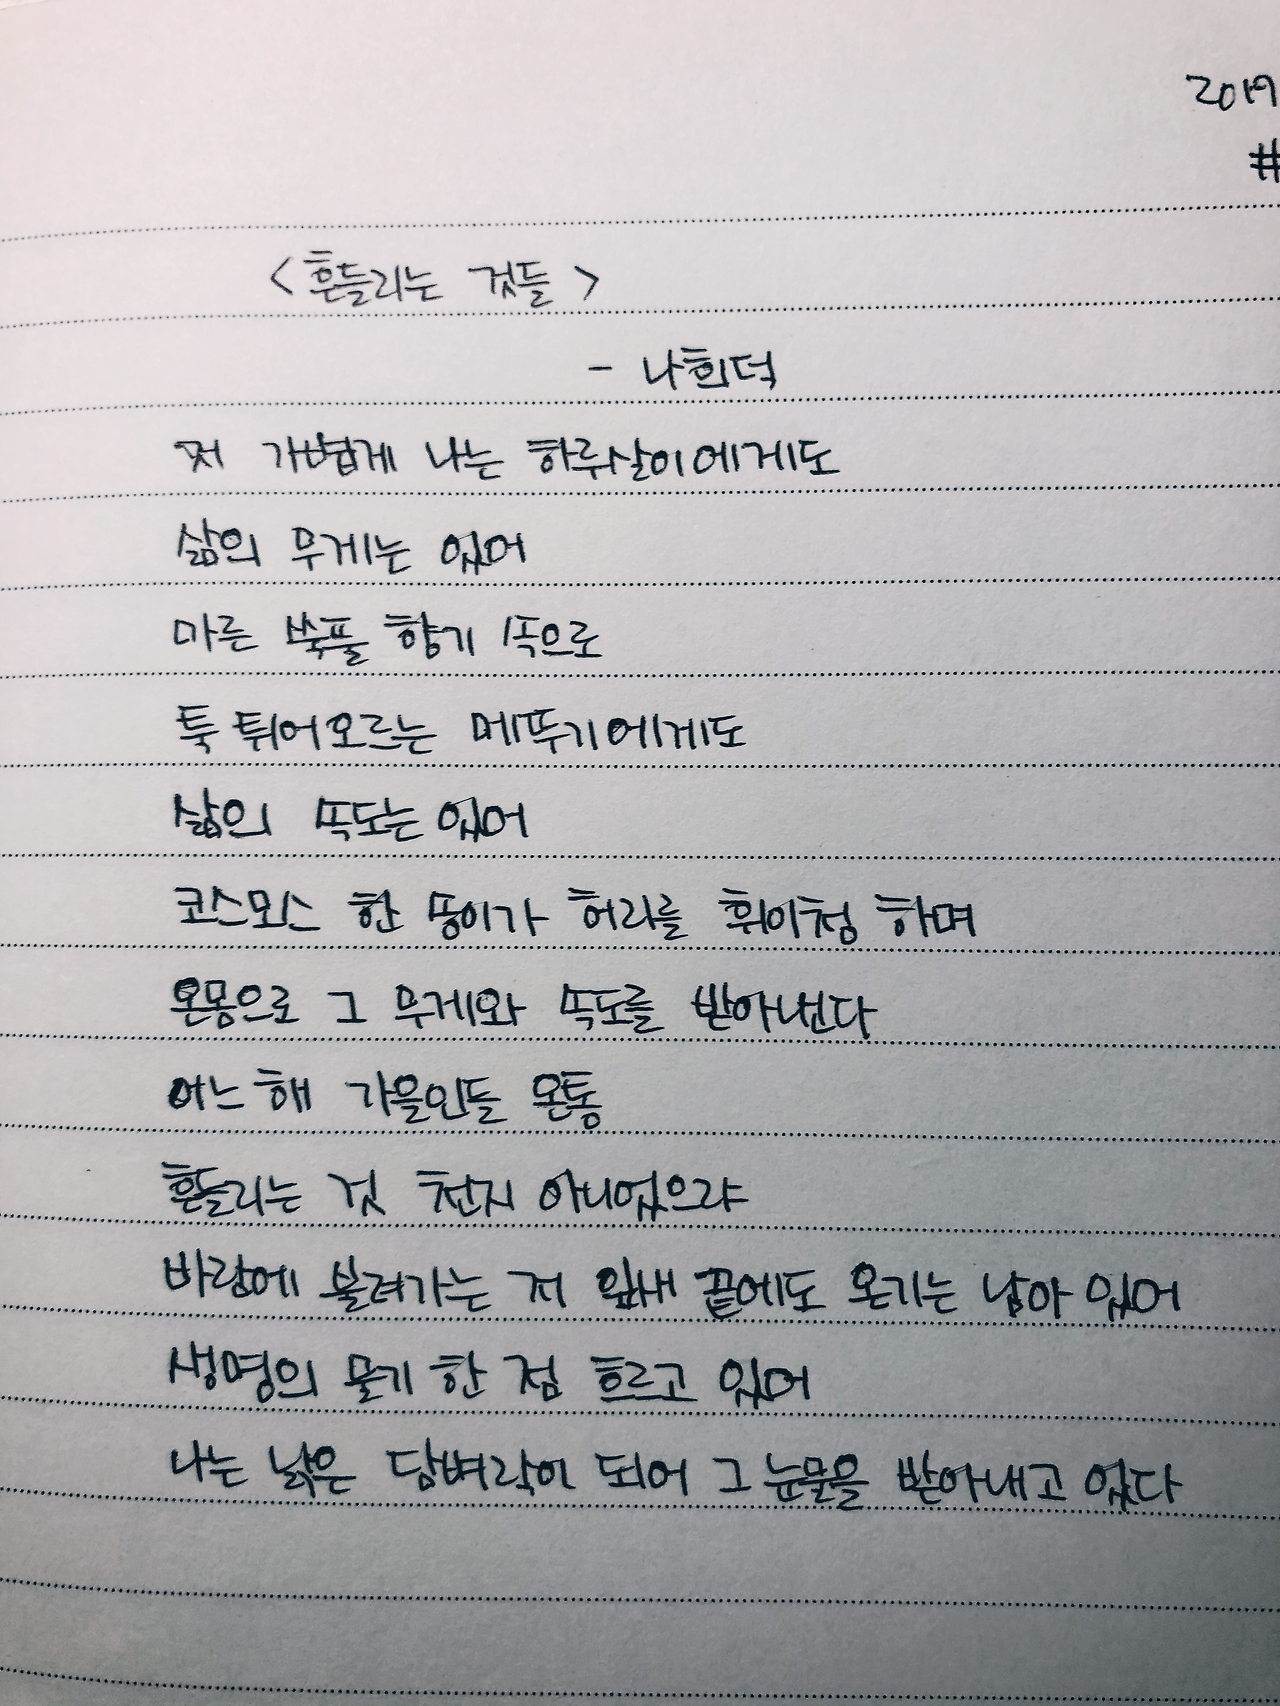 2019
#
<흔들리는 것들>
- 나희덕
저 가볍게 나는 하루살이에게도
삶의 무게는 있어
마른 쑥풀 향기 속으로
툭 튀어오르는 메뚜기에게도
삶의 속도는 있어
코스모스 한 송이가 허리를 휘이청 하며
온몸으로 그 무게와 속도를 받아낸다
어느 해 가을인들 온통
흔들리는 것 천지 아니었으랴
바람에 불려가는 저 잎새 끝에도 온기는 남아 있어
생명의 물기 한 점 흐르고 있어
나는 낡은 담벼락이 되어 그 눈물을 받아내고 있다